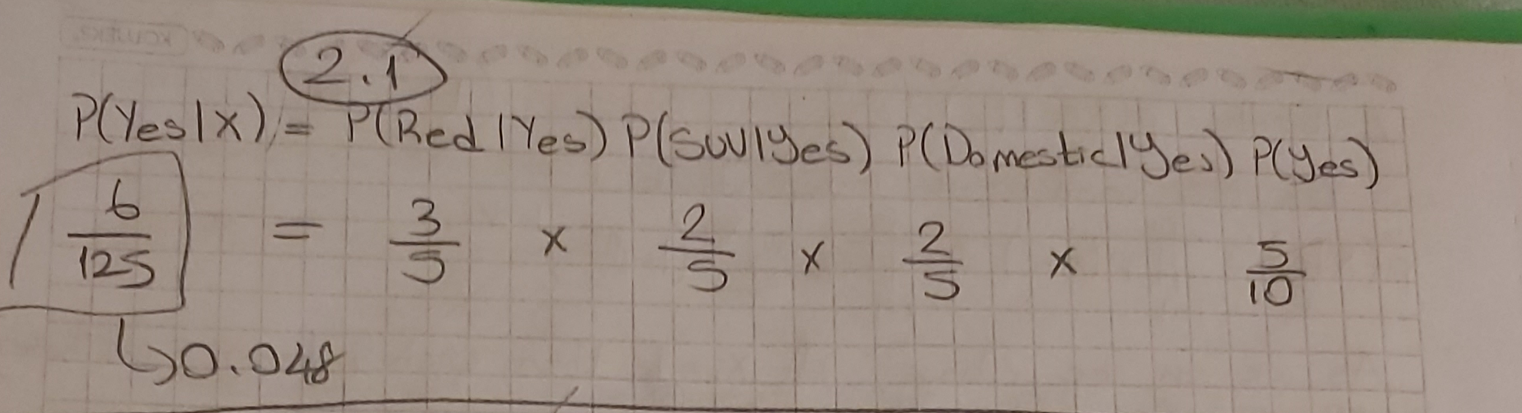 2.1
P(Yes|X) = P(Red|Yes) P(SUV|Yes) P(Domestic|Yes) P(Yes)
6/125 = 3/5 × 2/5 × 2/5 × 5/10
↳ 0.048